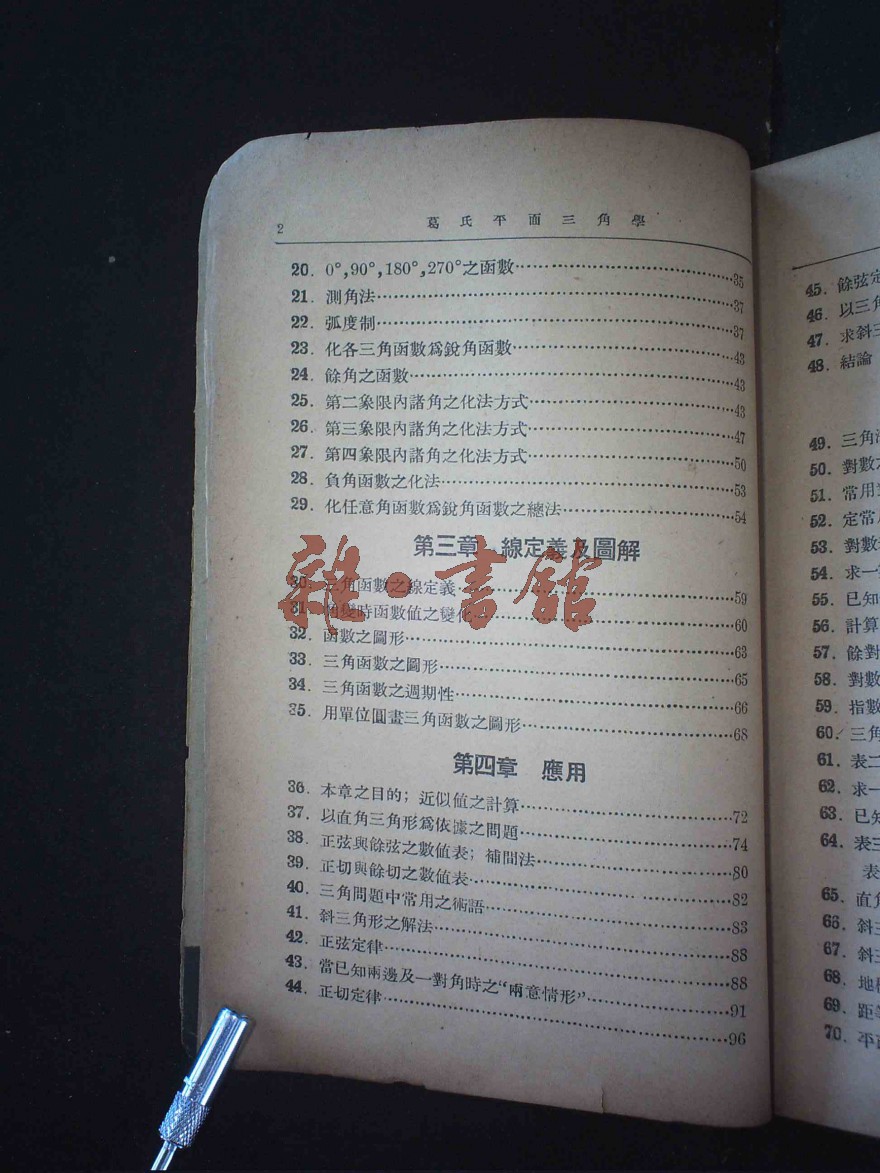 2 葛氏平面三角學
20. 0°,90°,180°,270°之函數……35
21. 測角法……37
22. 弧度制……37
23. 化各三角函數爲銳角函數……43
24. 餘角之函數……43
25. 第二象限內諸角之化法方式……43
26. 第三象限內諸角之化法方式……47
27. 第四象限內諸角之化法方式……50
28. 負角函數之化法……53
29. 化任意角函數爲銳角函數之總法……54
第三章 線定義及圖解
30. 三角函數之線定義……59
31. 變時函數值之變化……60
32. 函數之圖形……63
33. 三角函數之圖形……65
34. 三角函數之週期性……66
35. 用單位圓畫三角函數之圖形……68
雜·書館
第四章 應用
36. 本章之目的；近似值之計算……72
37. 以直角三角形爲依據之問題……74
38. 正弦與餘弦之數值表；補間法……80
39. 正切與餘切之數值表……82
40. 三角問題中常用之術語……83
41. 斜三角形之解法……88
42. 正弦定律……88
43. 當已知兩邊及一對角時之“兩意情形”……91
44. 正切定律……96
45. 餘弦定
46. 以三角
47. 求斜三
48. 結論
49. 三角
50. 對數
51. 常用
52. 定常
53. 對數
54. 求一
55. 已知
56. 計算
57. 餘對
58. 對數
59. 指數
60. 三角
61. 表二
62. 求一
63. 已知
64. 表三
表
65. 直角
66. 斜三
67. 斜三
68. 地
69. 距
70. 平面